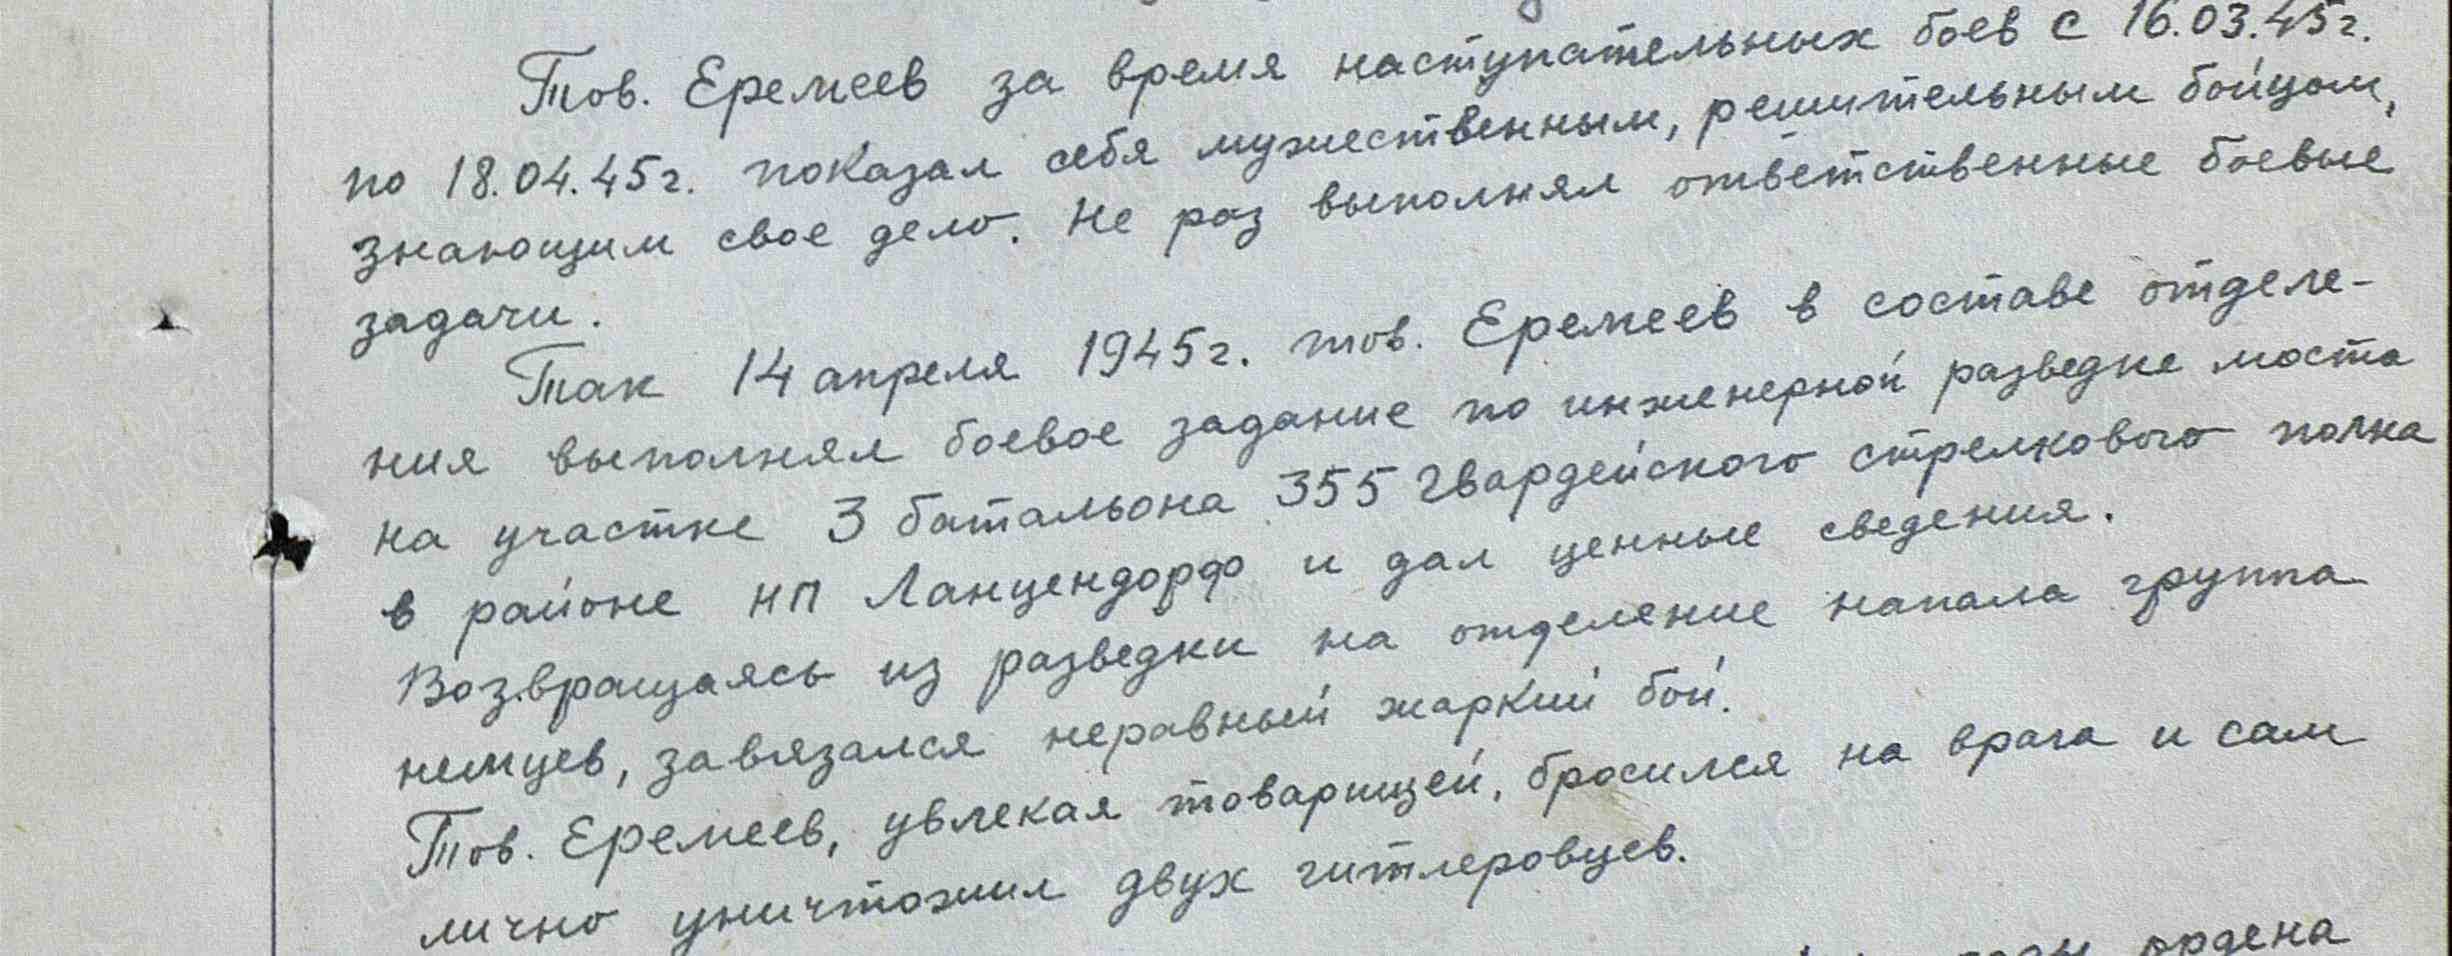 Тов. Еремеев за время наступательных боев с 16.03.45г.
по 18.04.45г. показал себя мужественным, решительным бойцом,
знающим свое дело. Не раз выполнял ответственные боевые
задачи.
Так 14 апреля 1945г. тов. Еремеев в составе отделе-
ния выполнял боевое задание по инженерной разведке моста
на участке 3 батальона 355 гвардейского стрелкового полка
в районе НП Ланцендорф и дал ценные сведения.
Возвращаясь из разведки на отделение напала группа
немцев, завязался неравный жаркий бой.
Тов. Еремеев, увлекая товарищей, бросился на врага и сам
лично уничтожил двух гитлеровцев.
ордена